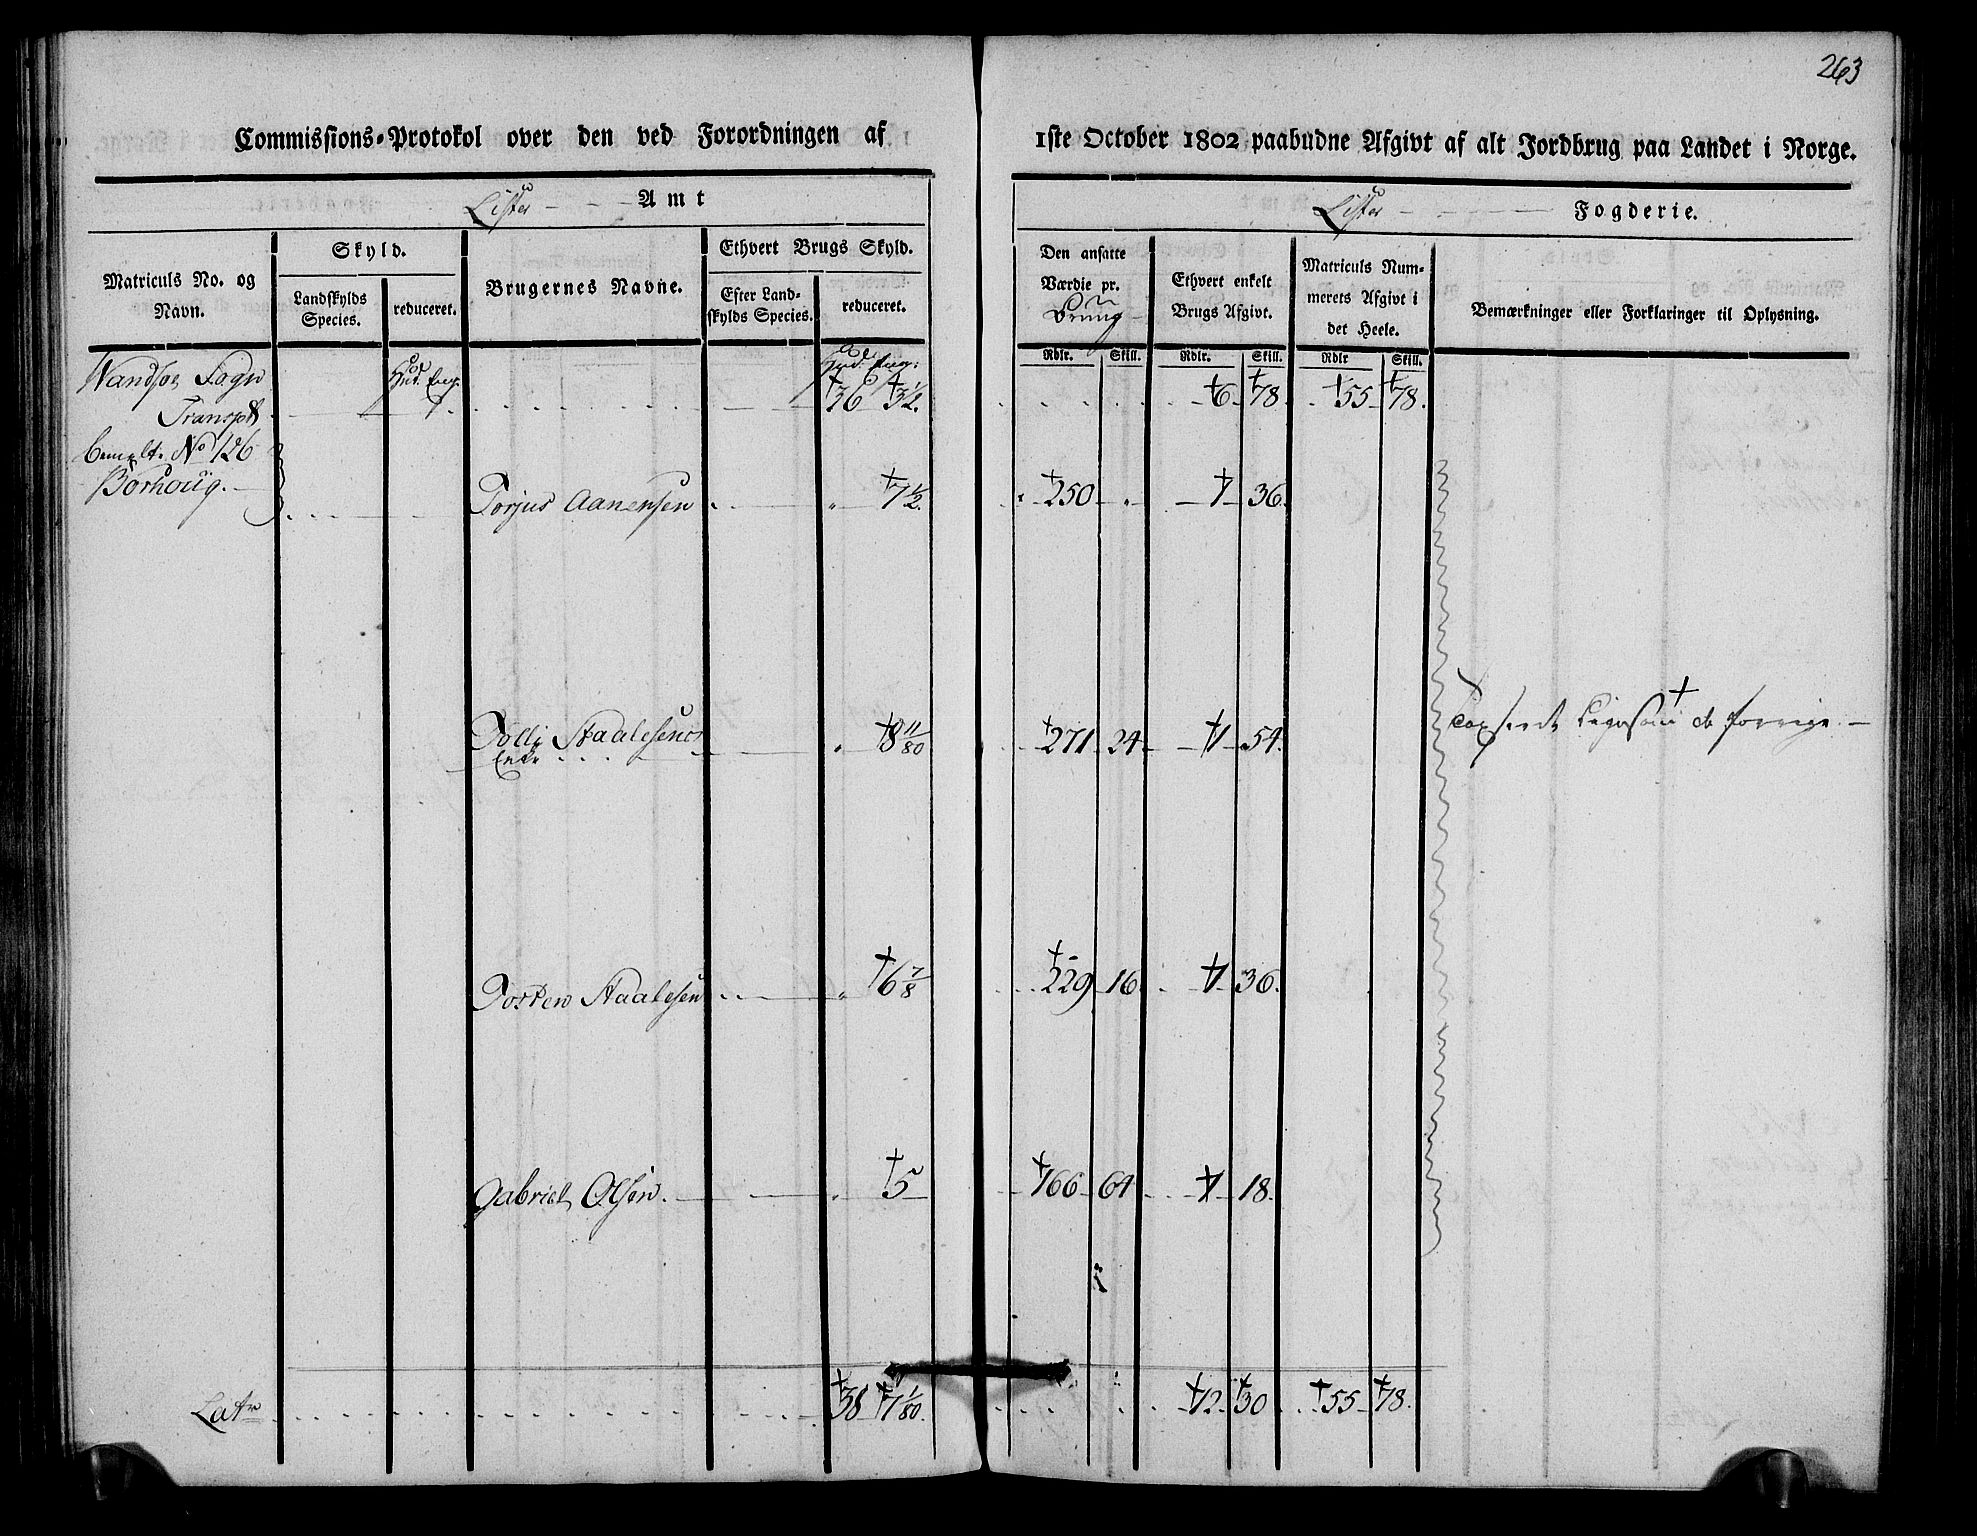 263
Commissions-Protokol over den ved Forordningen af 1ste October 1802 paabudne Afgivt af alt Jordbrug paa Landet i Norge.
Lister Amt
Lister Fogderie.
Matriculs No. og Navn.
Skyld.
Landskylds Species.
reduceret.
Brugernes Navne.
Ethvert Brugs Skyld.
Efter Landskylds Species.
reduceret.
Den ansatte Værdie pr.
Ethvert enkelt Brugs Afgivt.
Matriculs Nummerets Afgivt i det Heele.
Bemærkninger eller Forklaringer til Oplysning.
Rdlr. Skill. Rdlr. Skill. Rdlr Skill.
Hud. Eng. Hud. Eng.
Wandsøe Sogn
Transpt 36 3½. 6 78. 55 78.
No 126
Borhoug.
Torjus Aanensen 7½. 250 1 36.
Staalesens 8 11/80 271 24. 1 54. forrige.
Enke
Torsten Staalesen 6 7/8 229 16. 1 36.
Gabriel Olsen. 5 166 64 1 18.
Latr 38 7 1/80. 12 30 55 78.